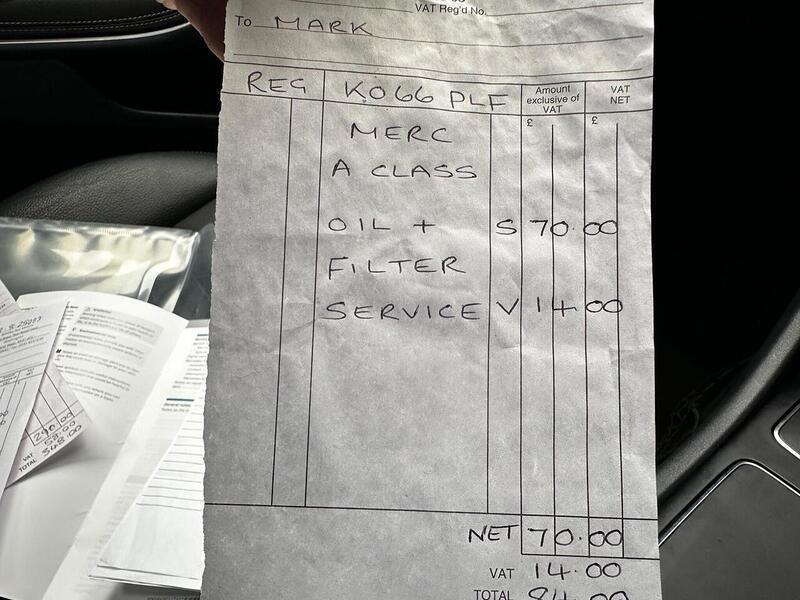 VAT Reg'd No.
To MARK
REG KO66 PLF Amount exclusive of VAT VAT NET
£ £
MERC
A CLASS
OIL + S 70.00
FILTER
SERVICE V 14.00
NET 70.00
VAT 14.00
TOTAL 84.00
290 00
VAT 58.00
TOTAL 348.00
General notes